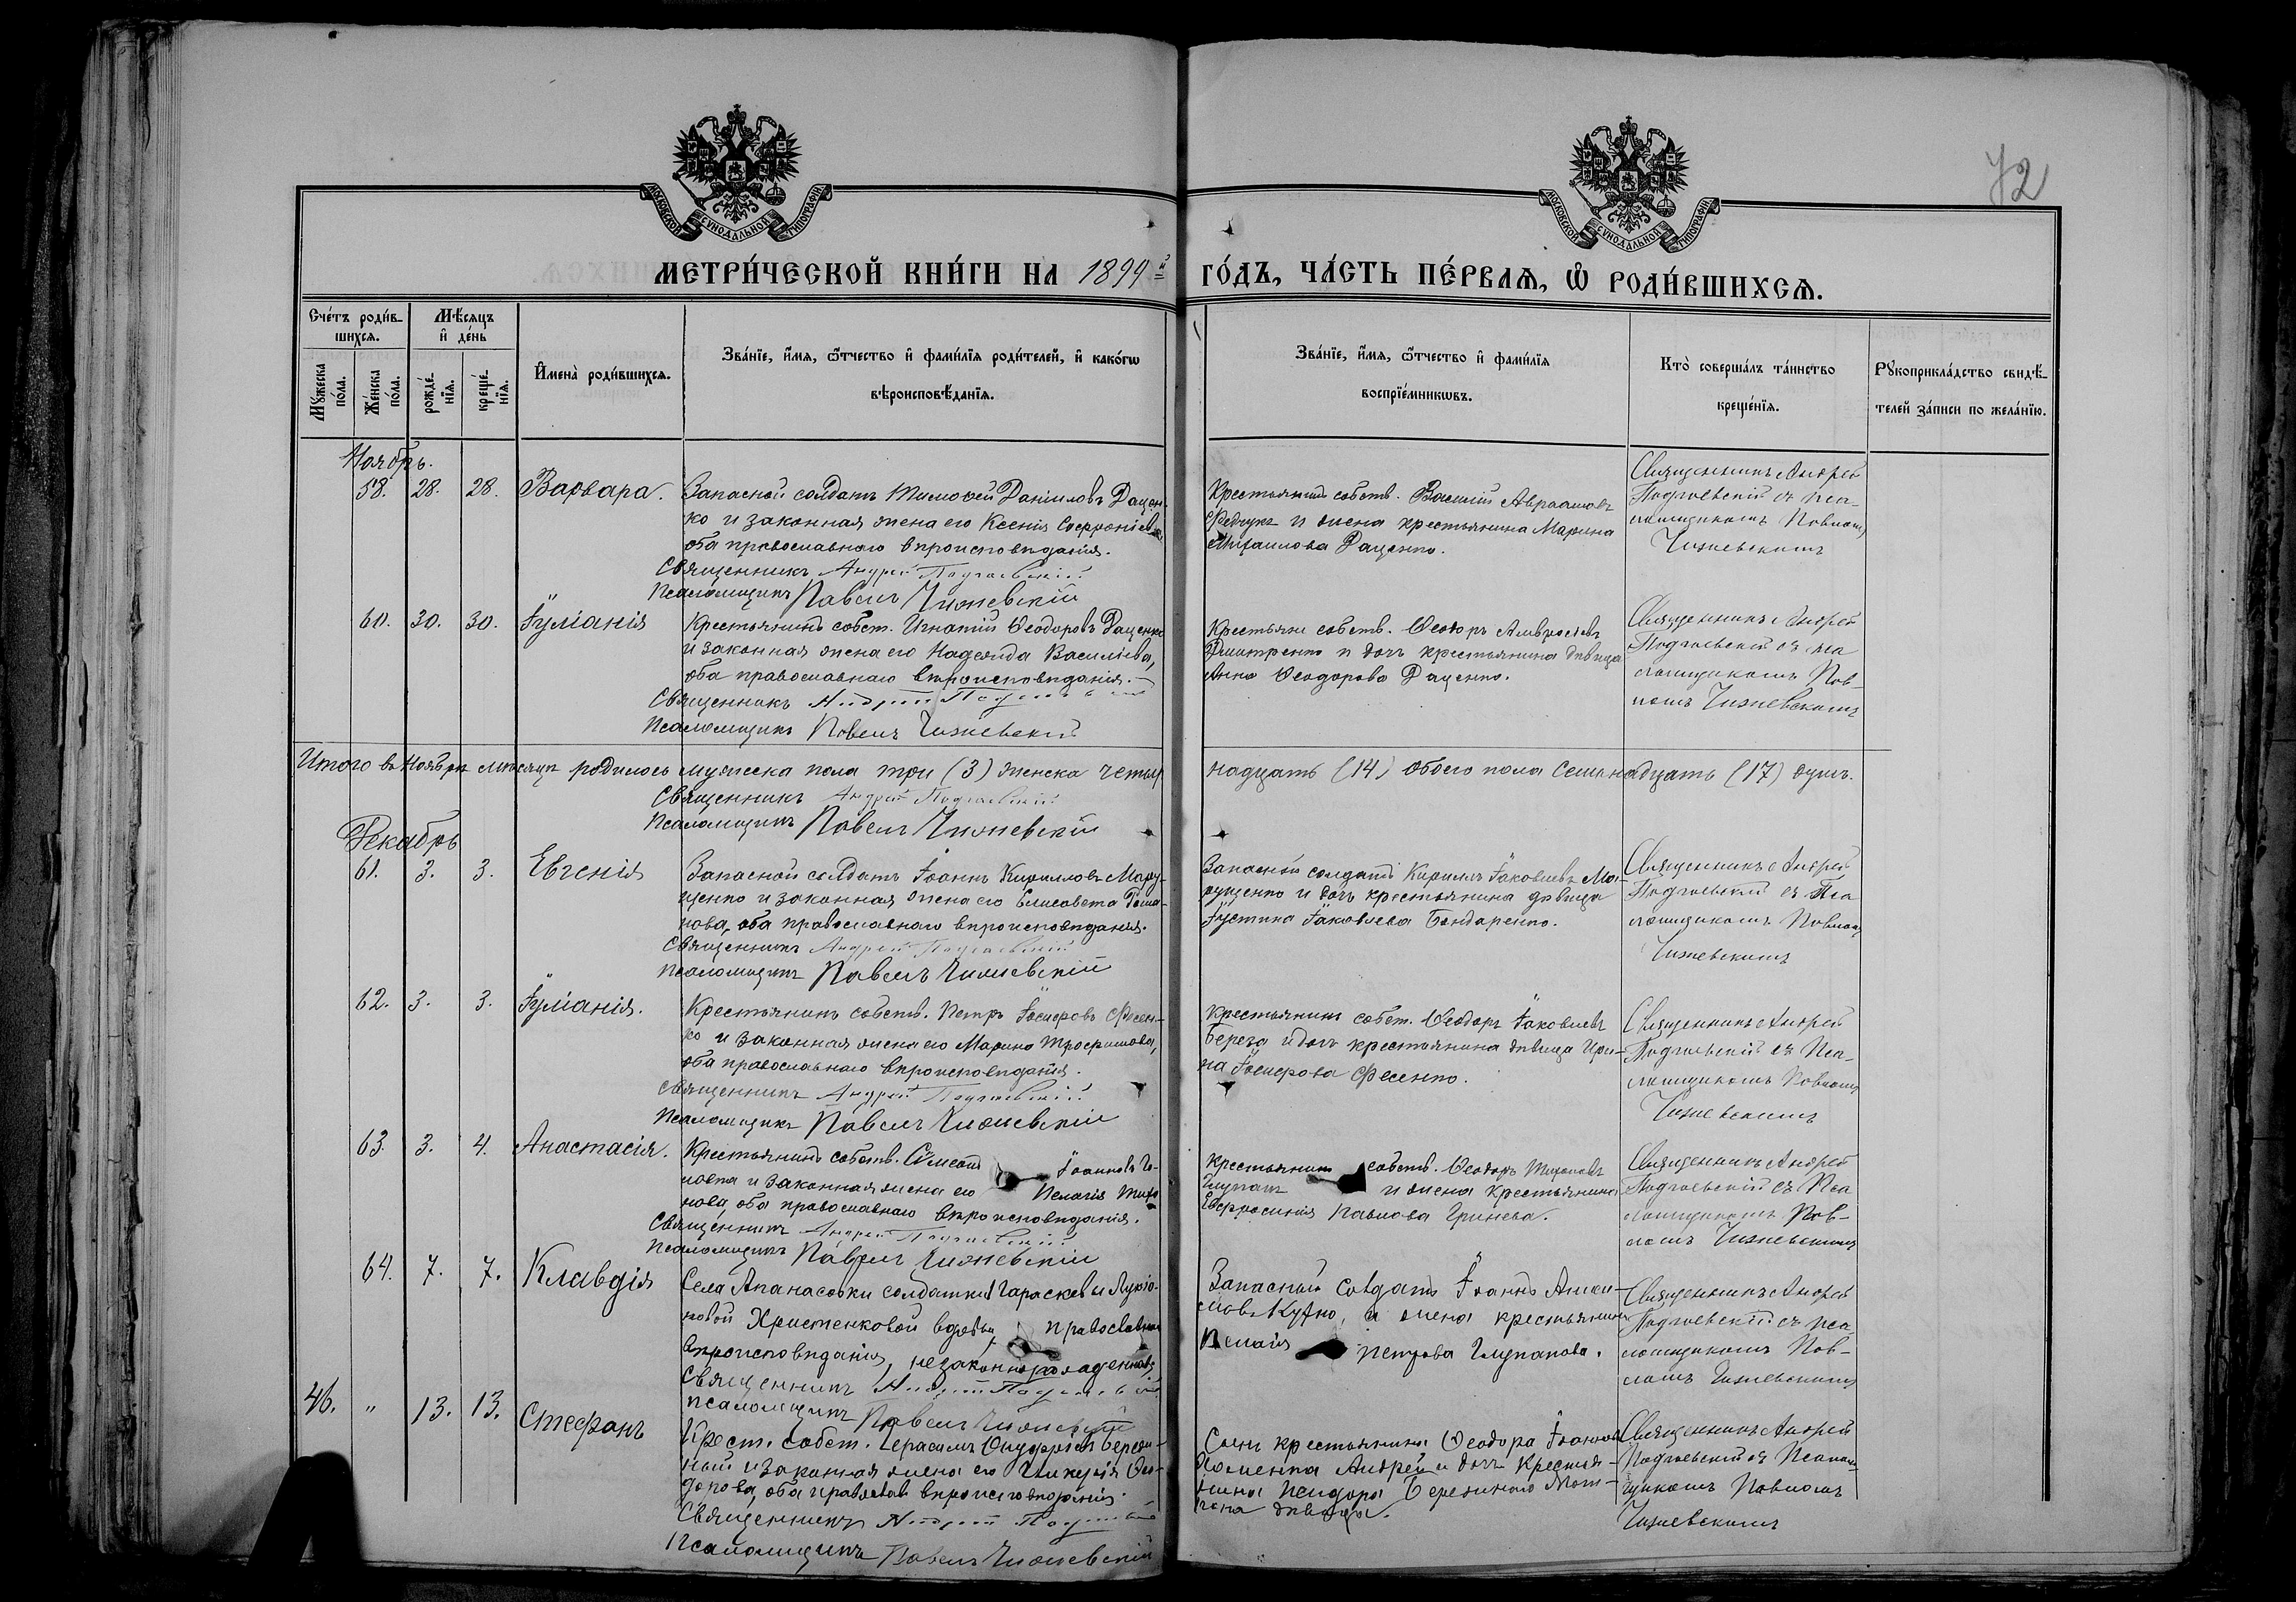 72
МОСКОВСКОЙ СѴНОДАЛЬНОЙ ТИПОГРАФІИ
МОСКОВСКОЙ СѴНОДАЛЬНОЙ ТИПОГРАФІИ
МЕТРИ́ЧЕСКОЙ КНИ́ГИ НА 1899й ГО́ДЪ, ЧА́СТЬ ПЕ́РВАѦ, Ѡ РОДИ́ВШИХСѦ.
Сче́тъ роди́в-
шихсѧ.
Мѣ́сѧцъ
и де́нь
Мꙋ́жеска
по́ла.
Же́нска
по́ла.
рожде́-
нїѧ.
креще́-
нїѧ.
Имена̀ роди́вшихсѧ.
Зва́нїе, и́мѧ, ѻ҆́тчество и фами́лїѧ роди́телей, и како́гѡ
вѣроисповѣ́данїѧ.
Зва́нїе, и́мѧ, ѻ҆́тчество и фами́лїѧ
воспрїе́мникѡвъ.
Кто̀ соверша́лъ та́инство
креще́нїѧ.
Рꙋкоприкла́дство свидѣ́-
телей за́писи по жела́нїю.
Ноябрь.
58. 28. 28. Варвара.
Запасной солдатъ Тимоѳей Даниловъ Дацен-
ко и законная жена его Ксенія Софроніева
оба православнаго вѣроисповѣданія.
Священникъ Андрей Подгаевскій
Псаломщикъ Павелъ Чижевскій
Крестьянинъ собств. Василій Авраамовъ
и жена крестьянина Марина
Михаилова Даценко.
Священникъ Андрей
Подгаевскій съ пса-
ломщикомъ Павломъ
Чижевскимъ
60. 30. 30. Іуліанія
Крестьянинъ собст. Игнатій Ѳеодоровъ Даценко
и законная жена его Надежда Васильева,
оба православнаго вѣроисповѣданія.
Священникъ Андрей
Псаломщикъ Павелъ Чижевскій
Крестьян собств. Ѳеодоръ Амвросіевъ
Дмитренко и дочь крестьянина дѣвица
Анна Ѳеодорова Даценко.
Священникъ Андрей
Подгаевскій съ пса
ломщикомъ Пав-
ломъ Чижевскимъ
Итого въ Ноябрѣ мѣсяцѣ родилось мужеска пола три (3) женска четыр надцать (14) обоего пола семьнадцать (17) душъ.
Священникъ Андрей Подгаевскій
Псаломщикъ Павелъ Чижевскій
Декабрь
61. 3. 3. Евгенія
Запасной солдатъ Іоаннъ Кирилловъ Мару-
щенко и законная жена его Елисавета Рома-
нова, оба православнаго вѣроисповѣданія.
Священникъ Андрей Подгаевскій
Псаломщикъ Павелъ Чижевскій
Запасной солдатъ Кириллъ Іаковлевъ Ма-
рущенко и дочь крестьянина дѣвица
Іустина Іаковлева Бондаренко.
Священникъ Андрей
Подгаевскій съ Пса
ломщикомъ Павломъ
Чижевскимъ
62. 3. 3. Іуліанія.
Крестьянинъ собств. Петръ Іосифовъ Фесен-
ко и законная жена его Марина Трофимова,
оба православнаго вѣроисповѣданія.
Священникъ Андрей Подгаевскій
Псаломщикъ Павелъ Чижевскій
Крестьянинъ собст. Ѳеодоръ Іаковлевъ
Береза и дочь крестьянина дѣвица Ири-
на Іосифова Фесенко.
Священникъ Андрей
Подгаевскій съ Пса-
ломщикомъ Павломъ
Чижевскимъ
63. 3. 4. Анастасія.
Крестьянинъ собств. Симеонъ Іоанновъ Го-
и законная жена его Пелагія Тихо
нова, оба православнаго вѣроисповѣданія.
Священникъ Андрей Подгаевскій
Псаломщикъ Павелъ Чижевскій
Крестьянинъ собств. Ѳеодоръ
и жена крестьянина
Евфросинія Павлова Гринева.
Священникъ Андрей
Подгаевскій съ Пса
ломщикомъ Пав-
ломъ Чижевскимъ
64. 7. 7. Клавдія
Села Апанасовки солдатки Параскевы Лукіа-
новой Христенковой вдовы, православнаго
вѣроисповѣданія, незаконнорожденная,
Священникъ Андрей
псаломщикъ Павелъ Чижевскій
Запасный солдатъ Іоаннъ
и жена крестьянина
Пелагія Петрова
Священникъ Андрей
Подгаевскій съ пса
ломщикомъ Пав-
ломъ Чижевскимъ
46. " 13. 13. Стефанъ
Крест. собст. Герасимъ Онуфріевъ Берези-
ный и законная жена его Гликерія Ѳео-
дорова, оба православ вѣроисповѣданія.
Священникъ Андрей
Псаломщикъ Павелъ Чижевскій
Сынъ крестьянина Ѳеодора Іоаннова
Хоменка Андрей и дочь крестья-
нина Исидора Березинаго Мат-
рона дѣвица.
Священникъ Андрей
Подгаевскій съ Псалом-
щикомъ Павломъ
Чижевскимъ